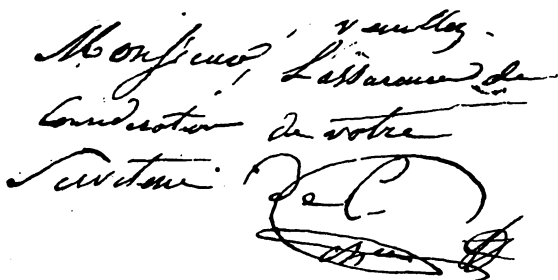 veuillez
Monsieur, L'assurance de
Consideration de votre
Serviteur De C.